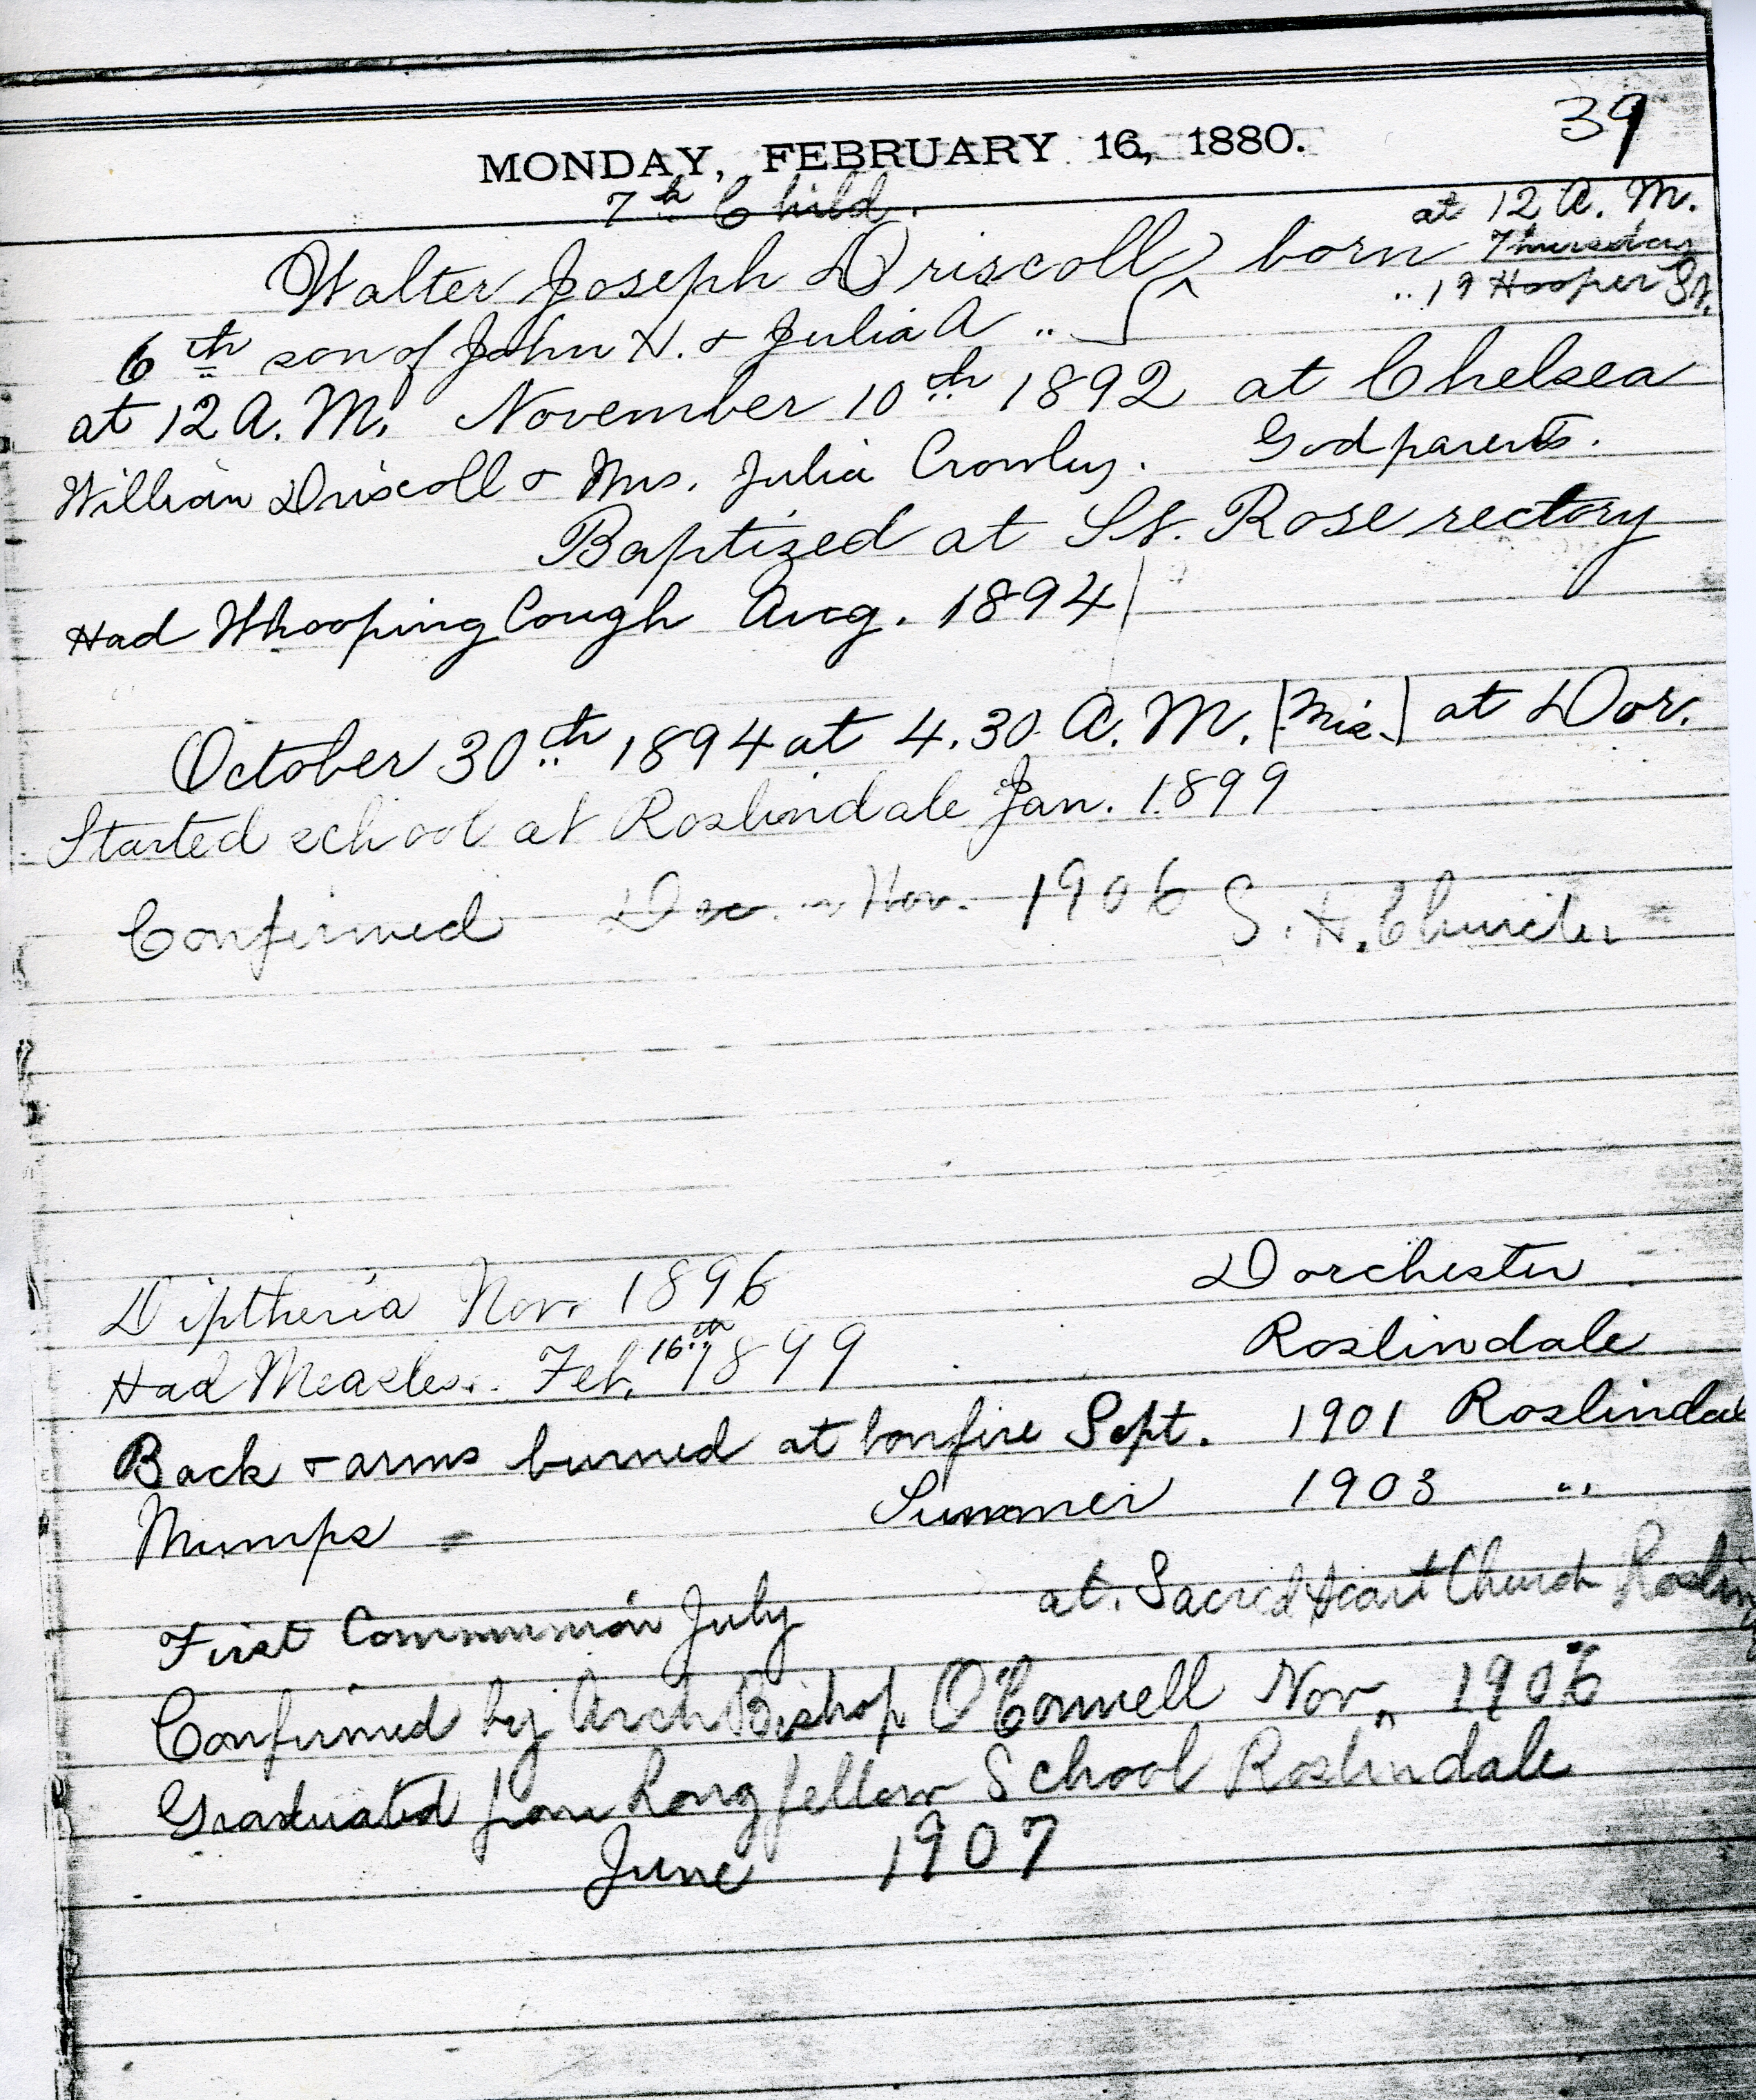 39
MONDAY, FEBRUARY 16, 1880.
7th Child.
at 12 A. M.
Walter Joseph Driscoll born Thursday
.. 19 Hooper St.
6th son of John H. & Julia A ..
at 12 A. M. November 10th 1892 at Chelsea
William Driscoll & Mrs. Julia Crowley. Godparents.
Baptized at St. Rose rectory
Had Whooping Cough Aug. 1894
October 30th 1894 at 4.30 A. M. [Mis.] at Dor.
Started school at Roslindale Jan. 1899
Confirmed Dec. or Nov. 1906 S. H. Church
Diptheria Nov. 1896 Dorchester
Had Measles. Feb. 16th 1899 Roslindale
Back & arms burned at bonfire Sept. 1901 Roslindale
Mumps Summer 1903 "
First Communion July at Sacred Heart Church Roslin
Confirmed by Arch Bishop O'Connell Nov. 1906
Graduated from Longfellow School Roslindale
June 1907